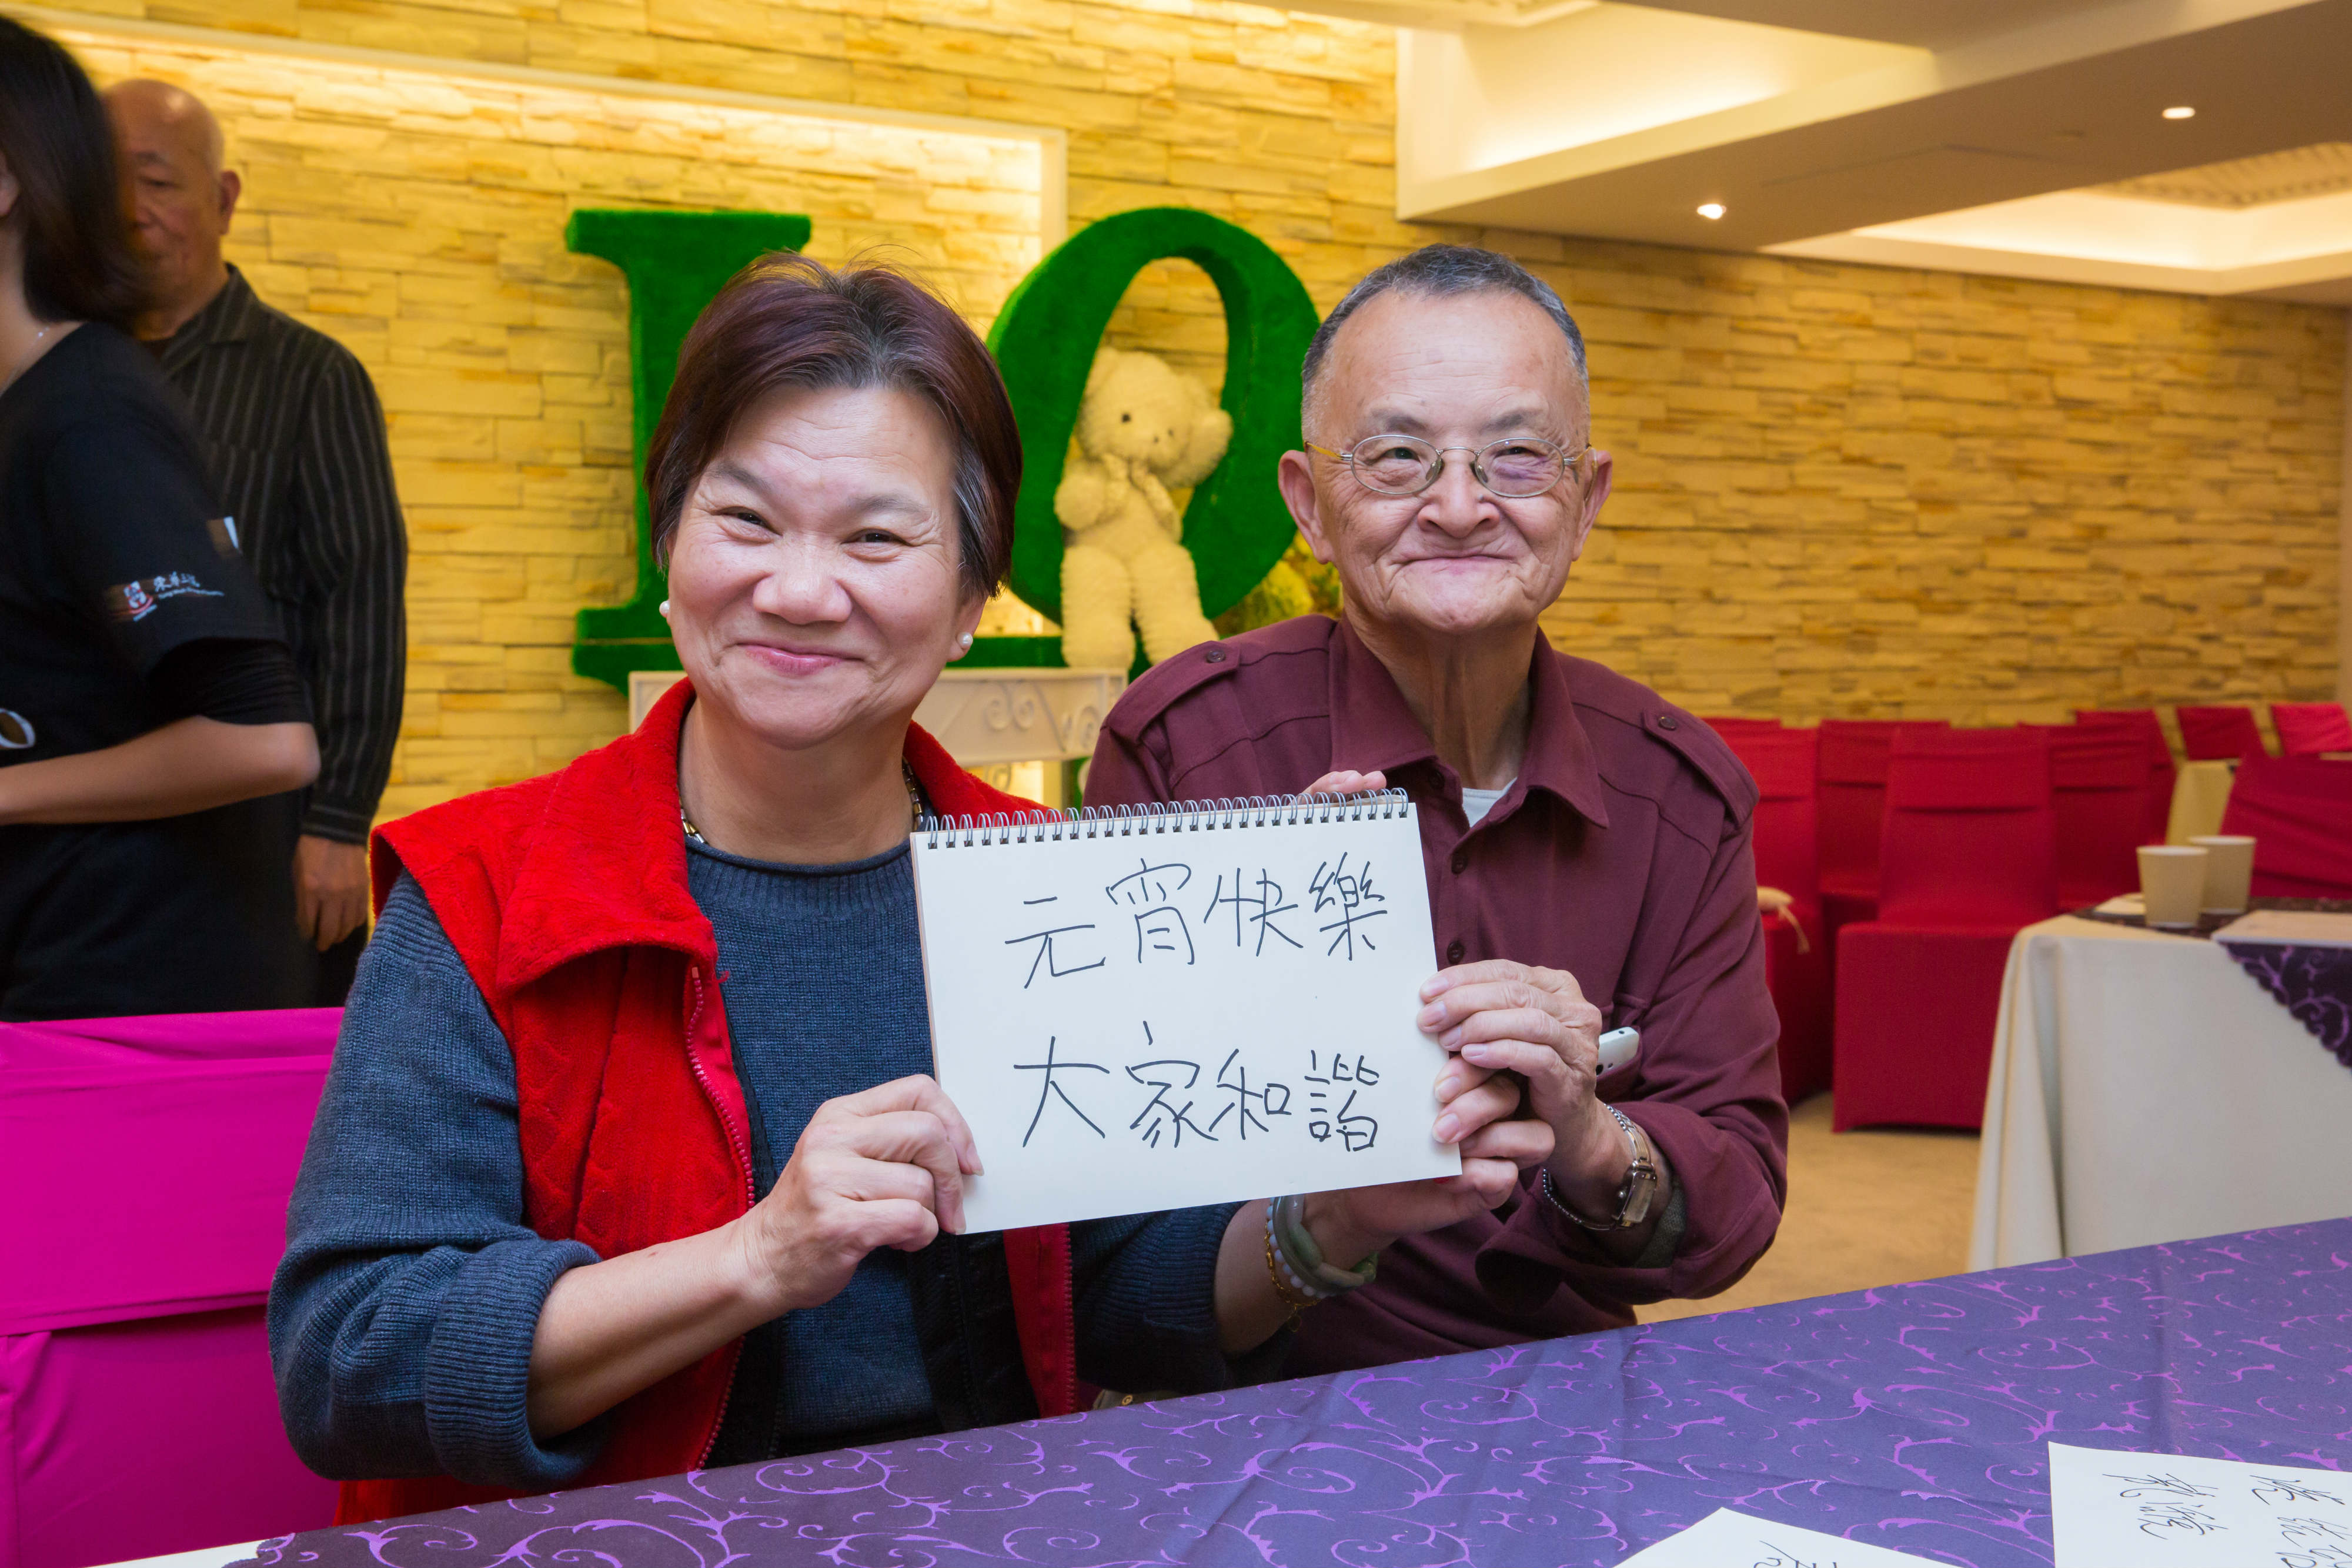 LO
元宵快樂
大家和諧